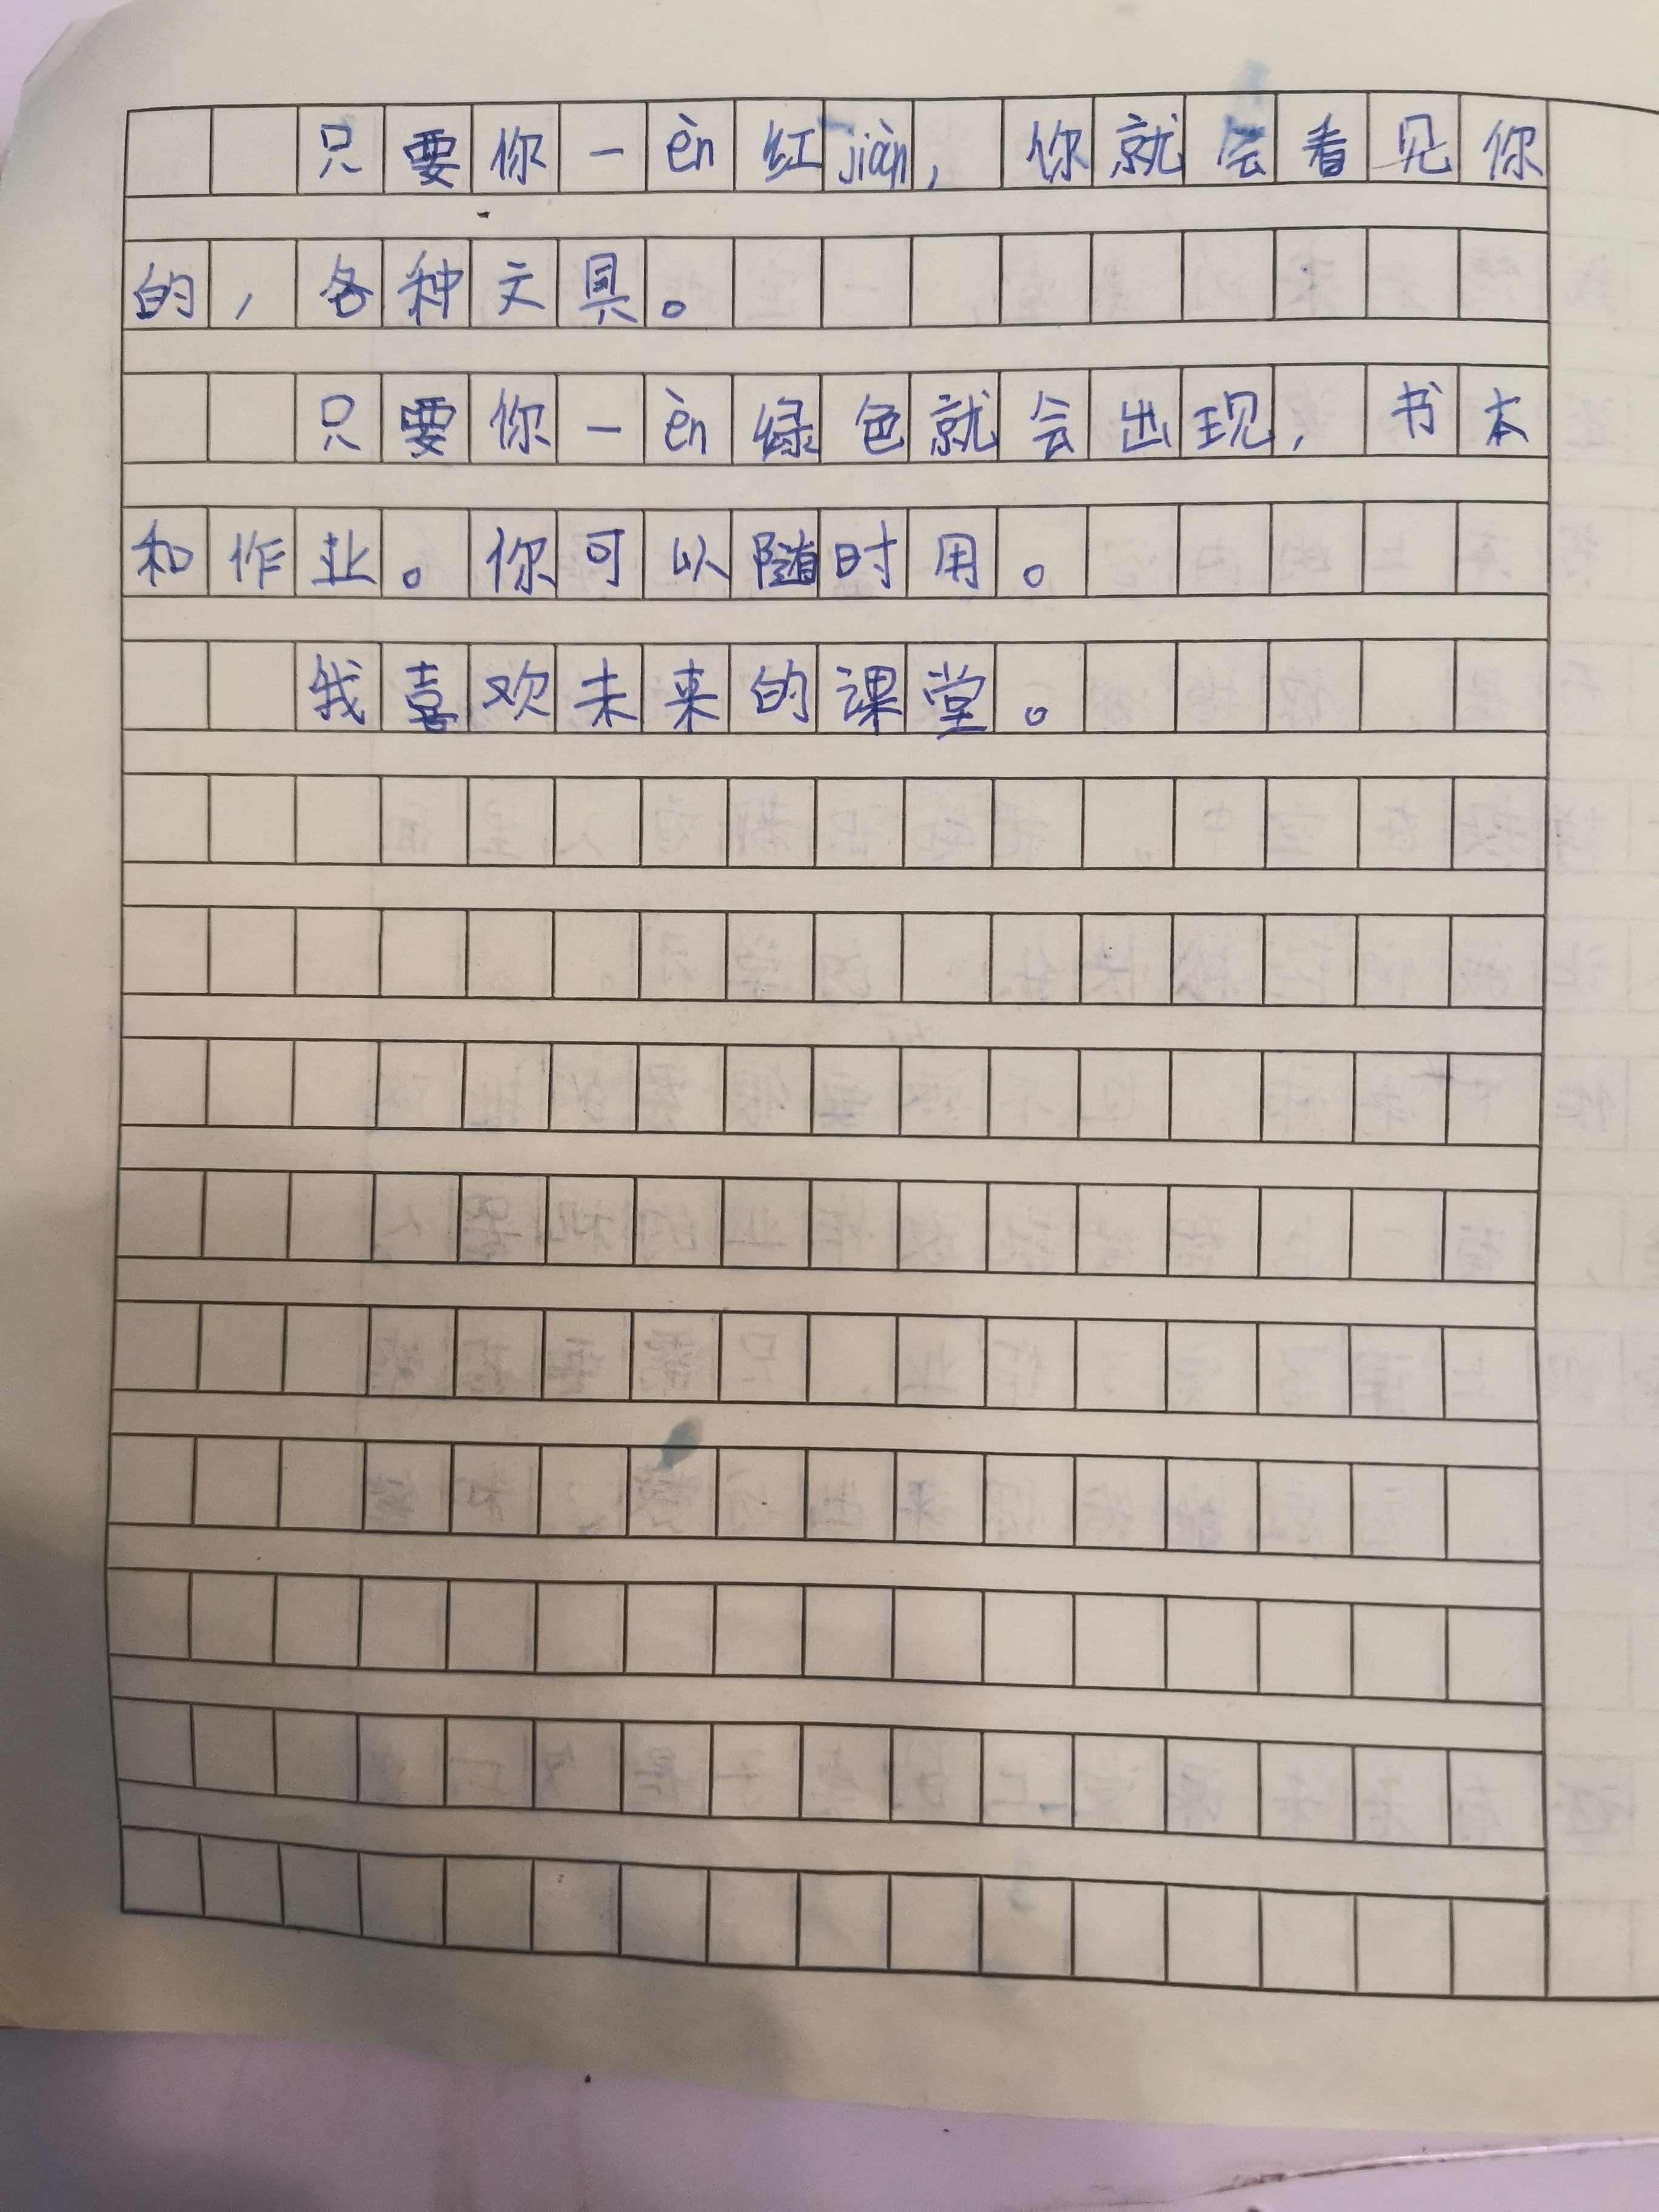 只要你一èn红jiàn，你就会看见你
的，各种文具。
只要你一èn绿色就会出现，书本
和作业。你可以随时用。
我喜欢未来的课堂。